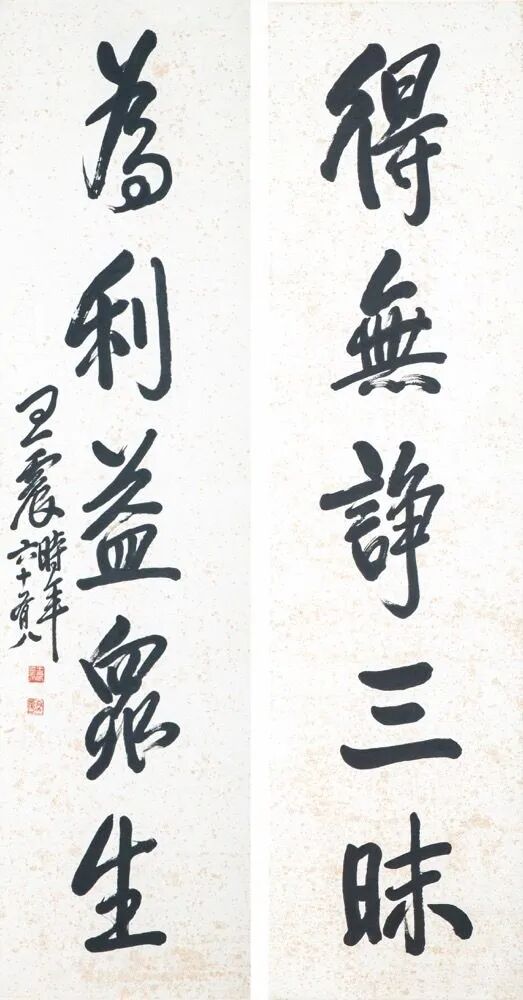 得無諍三昧
為利益眾生
王震時年
六十有八